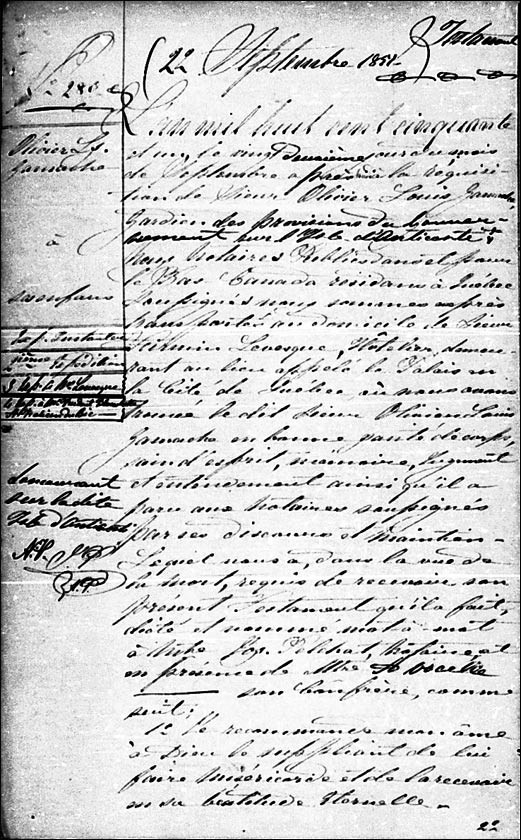 Testament
(22 Septembre 1851
No 286
L'an mil huit cent cinquante
et un, le vingt Deuxième jour du mois
de Septembre a la requisi
tion de Sieur Olivier Louis Gamache
Gardien des provisions du Gouver-
nement sur l'Isle d'Anticosti
Nous Notaires Publics dans et pour
le Bas Canada résidans à Québec
Soussignés nous sommes exprès
transportés au domicile de Sieur
Firmin Levesque, Hôtelier, demeu-
rant au lieu appelé le Palais en
la Cité de Québec où nous avons
trouvé le dit Sieur Olivier Louis
Gamache en bonne santé de corps,
sain d'esprit, mémoire, Jugement
et entendement ainsi qu'il a
paru aux Notaires soussignés
par ses discours et maintien -
Lequel nous a, dans la vue de
la mort, requis de recevoir son
présent Testament qu'il a fait,
dicté et nommé mot à mot
à Mtre Jos. Petitclerc, Notaire, et
en présence de Mtre
son Confrère, comme
suit:
1o Je recommande mon âme
à Dieu le suppliant de lui
faire miséricorde et de la recevoir
en sa béatitude Eternelle -
22
Olivier Ls.
Gamache
à
ses enfans
demeurant
sur la dite
Isle d'Anticosti
J.P.